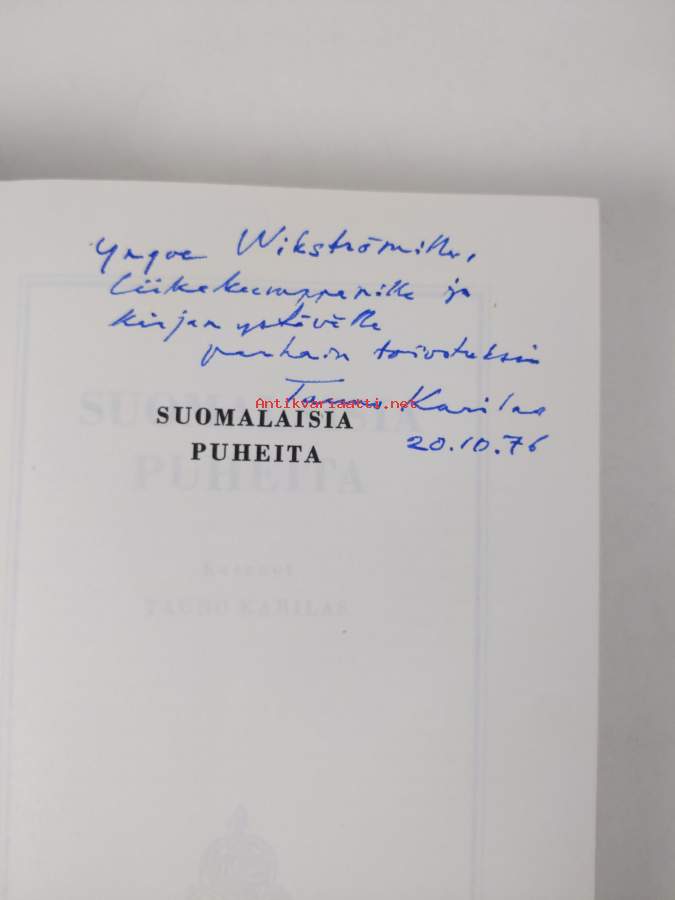 Yngve Wikströmille,
liikekumppanille ja
kirjan ystävälle
parhain toivotuksin
Tauno Karilas
Antikvariaatti.net
20.10.76
SUOMALAISIA
PUHEITA
SUOMALAISIA
PUHEITA
Koonnut
TAUNO KARILAS